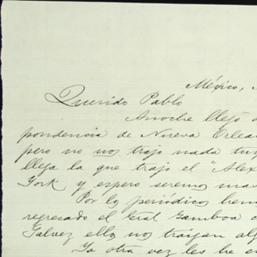 México,
Querido Pablo
Anoche llegó
pondencia de Nueva Orlea
pero no nos trajo nada tuy
llega la que trajo el "Alex
York y espero seremos mas
Por los periódicos hem
regresado el Gral Gamboa
Galvez ellos nos traigan alg
Ya otra vez les he